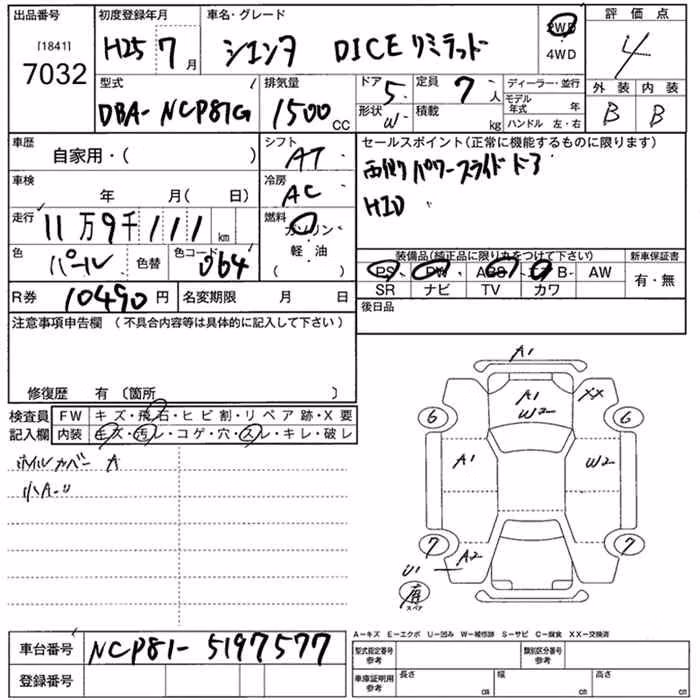 出品番号 初度登録年月 車名・グレード 評価点
[1841] 7032 H25 7月 シエンタ DICE リミテッド 2WD 4WD 4
外装 内装
B B
型式 排気量 ドア 5 定員 7人 ディーラー・並行
DBA-NCP81G 1500cc 形状 W 積載 kg モデル年式 年
ハンドル 左・右
車歴 シフト セールスポイント(正常に機能するものに限ります)
自家用・( ) AT 両側パワースライドドア
車検 冷房 HID
年 月( 日) AC
走行 11万9千111km 燃料 ガソリン・軽・油( )
色 パール 色替 色コード 064
装備品(純正品に限り丸をつけて下さい) 新車保証書
PS PW ABS エアB AW 有・無
SR ナビ TV カワ
R券 10490円 名変期限 月 日
後日品
注意事項申告欄(不具合内容等は具体的に記入して下さい)
修復歴 有(箇所 )
検査員 FW キズ・飛石・ヒビ割・リペア跡・X要
記入欄 内装 キズ・汚レ・コゲ・穴・スレ・キレ・破レ
ホイルカバー A
小A・U
A1
A1 XX
W2
6 6
A1 W2
7 7
U1 A2
スペア
A-キズ E-エクボ U-凹み W-補修跡 S-サビ C-腐食 XX-交換済
車台番号 NCP81-5197577
型式指定番号 参考 類別区分番号 参考
登録番号
車庫証明用 参考 長さ cm 幅 cm 高さ cm